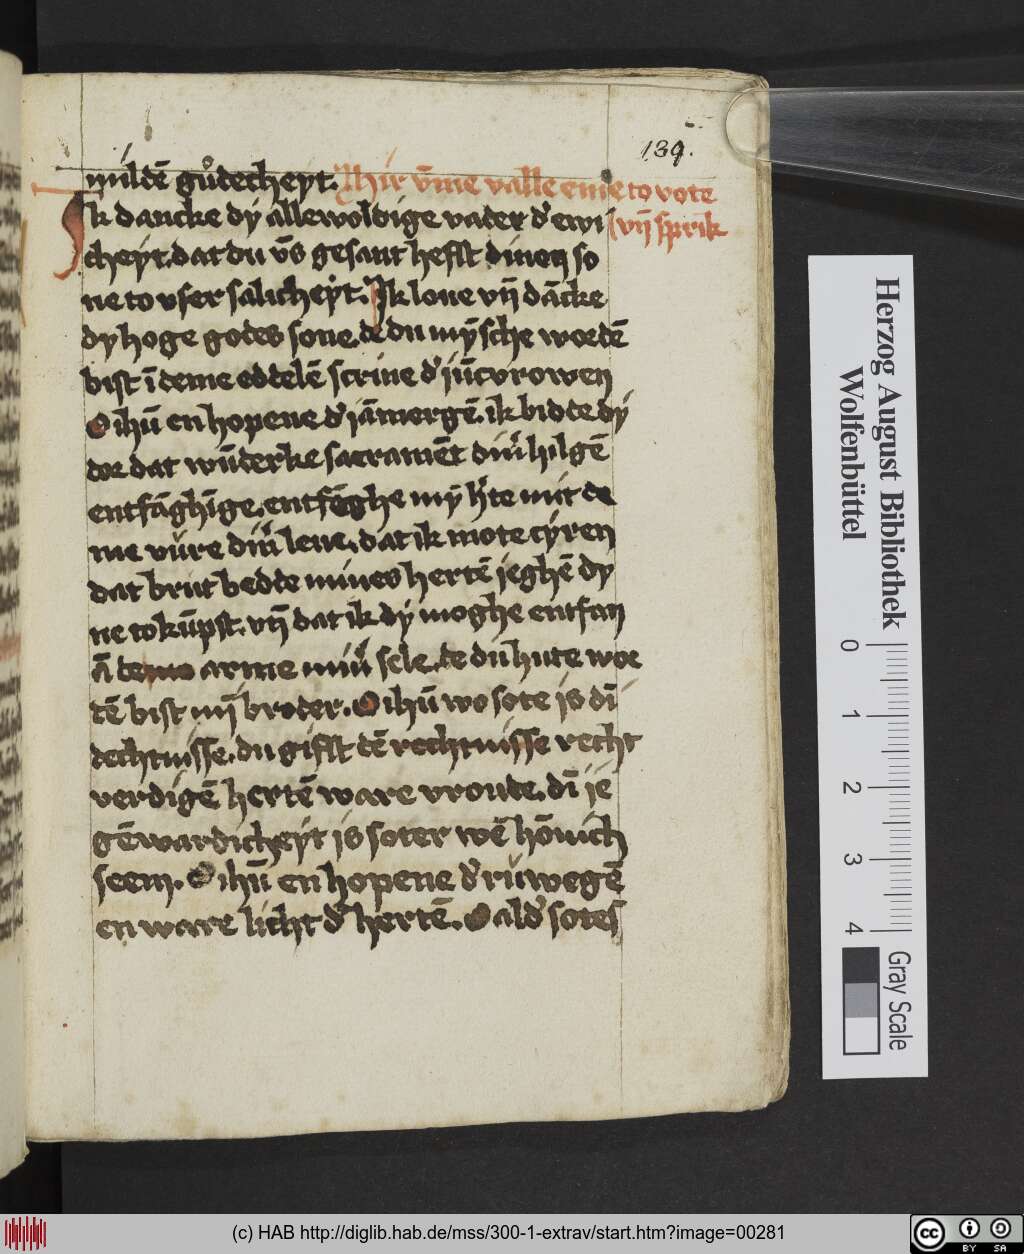 139.
mildē gůdecheyt. Alhir v̄me valle eme to vote
Ik dancke dy allewoldige vader d' ewi (vn̄ sprik
cheyt. dat du v̄s gesant hefst dinen so
ne to vser salicheyt. Ik loue vn̄ dācke
dy hoge godes sone. de du mȳsche wordē
bist ī deme eddelē scrine d' jūcvrowen
O ihū en hopene d' jāmergē. ik bidde dy
dor dat wūderke sacramēt din' hilgē
entfāghīge. entfēghe mȳ h'te mit de
me vüre din' leue. dat ik mote cyren
dat brut bedde mines hertē jeghē dy
ne tokūpst. vn̄ dat ik dy moghe entfan
ā arme min' sele. de du hute wor
dē bist mȳ broder. O ihū wo sote is dī
dechtnisse. du gifst dē rechtnisse recht
verdigē hertē ware vroude. dī je
gēwardicheyt is soter wē hōnich
seem. O ihū en hopene d' rüwegē
en ware licht d' hertē. O al d' sotes
Herzog August Bibliothek
Wolfenbüttel
0 1 2 3 4
Gray Scale
(c) HAB http://diglib.hab.de/mss/300-1-extrav/start.htm?image=00281
cc BY SA